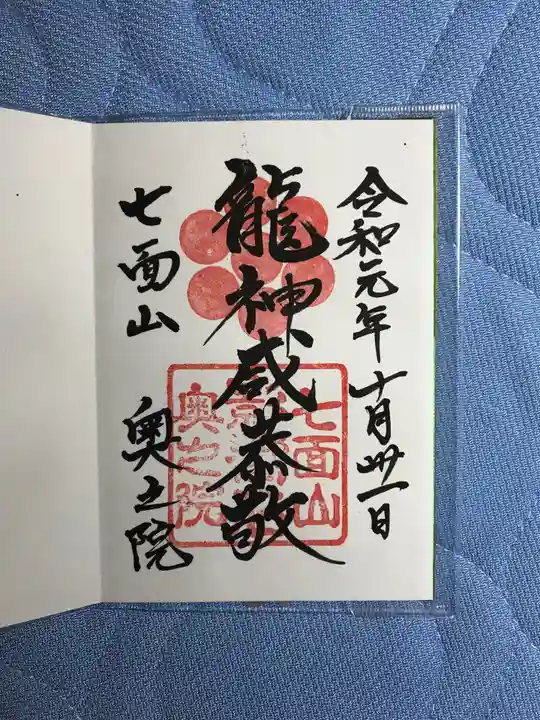 令和元年十月卅一日
龍神咸恭敬
七面山 奥之院
七面山
奥之院